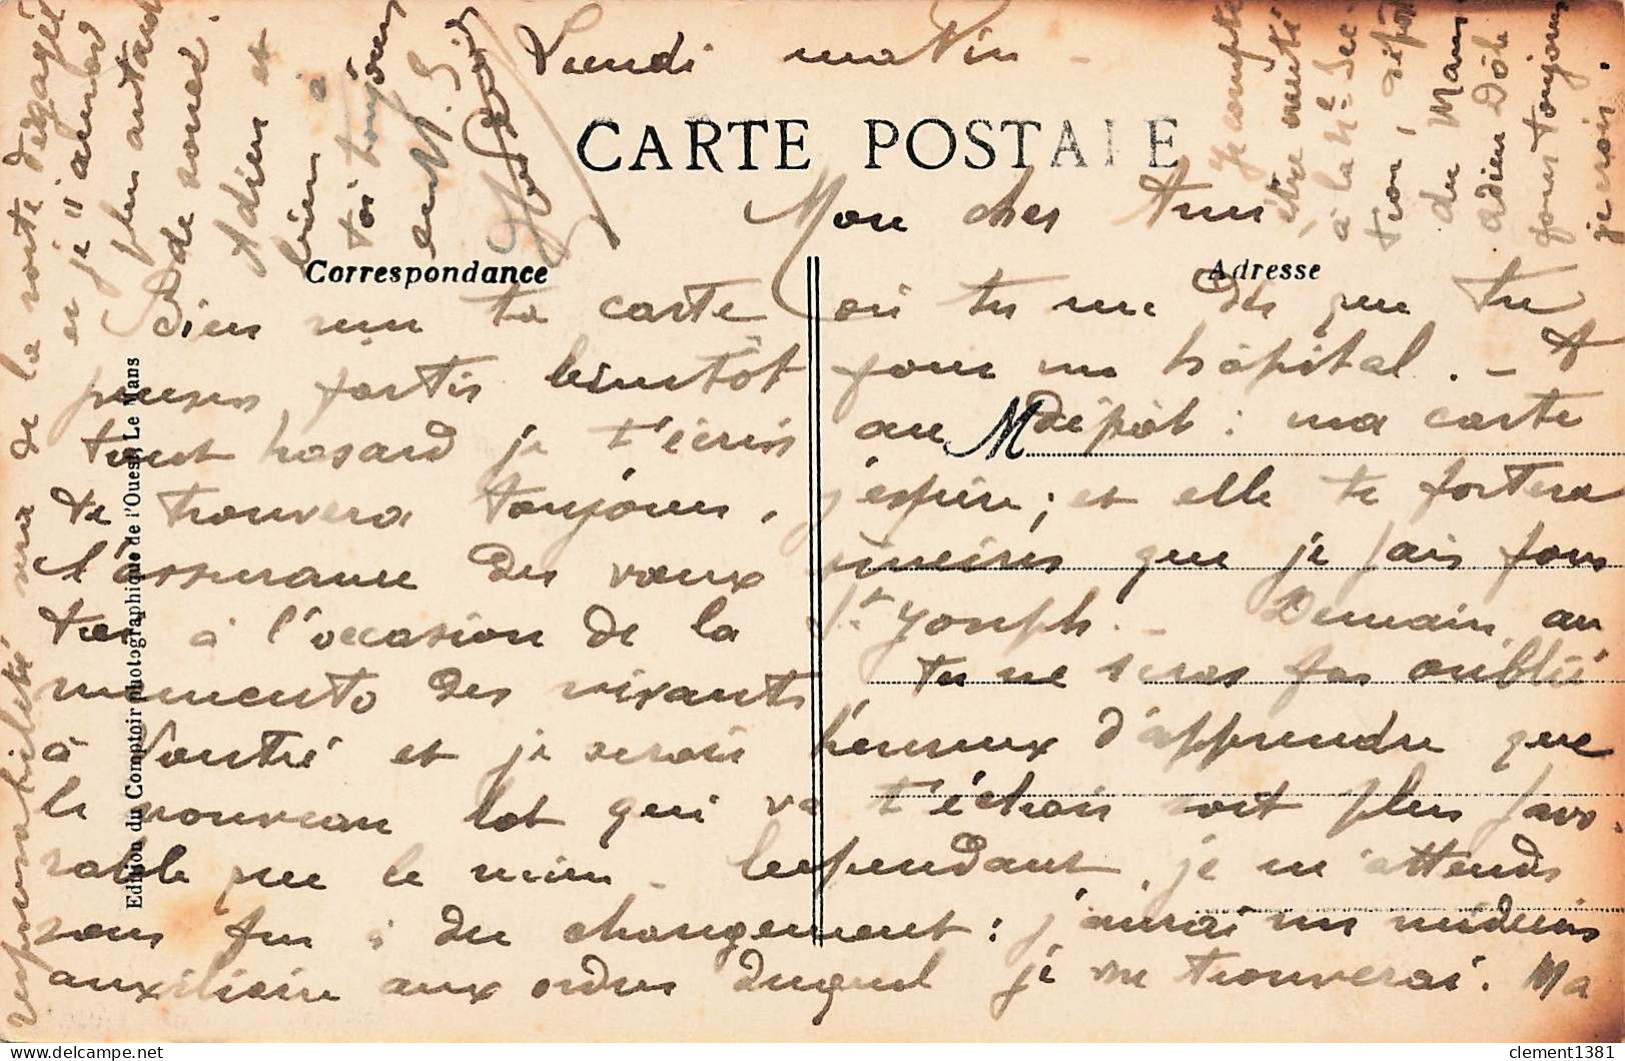 Lundi matin -
CARTE POSTALE
Mon cher Ami
Correspondance
Adresse
Bien reçu ta carte où tu me dis que tu
penses partir bientôt pour un hôpital. - A
tout hasard je t'écris au dépôt : ma carte
M
te trouvera toujours, j'espère ; et elle te portera
l'assurance des vœux sincères que je fais pour
toi à l'occasion de la St Joseph. - Demain, au
memento des vivants tu ne seras pas oublié
à Voutré et je serais heureux d'apprendre que
le nouveau lot qui va t'échoir soit plus favo-
rable que le mien - Cependant, je m'attends
sous peu à du changement : j'aurai un médecin
auxiliaire aux ordres duquel je me trouverai. Ma
responsabilité sera de la sorte dégagée
et je n'aurai
plus autant
de soucis.
Adieu et
bien à
toi toujours
Je compte
être
à la
du Mans
adieu Dôle
pour toujours
je crois.
Edition du Comptoir photographique de l'Ouest Le Mans
clement1381